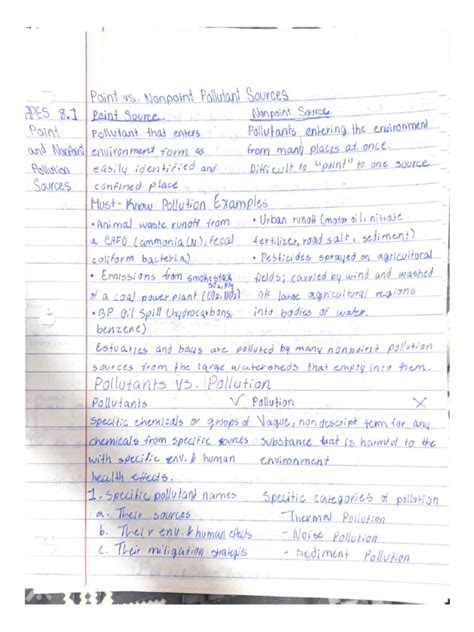 Point vs. Nonpoint Pollutant Sources
APES 8.1 Point Source Nonpoint Source
Point Pollutant that enters Pollutants entering the environment
and Nonpoint environment form as from many places at once.
Pollution easily identified and Difficult to "point" to one source
Sources confined place
Must-Know Pollution Examples
• Animal waste runoff from • Urban runoff (motor oil, nitrate
a CAFO (ammonia (N), fecal fertilizer, road salt, sediment)
coliform bacteria) • Pesticides sprayed on agricultural
• Emissions from smokestack fields; carried by wind and washed
SO2,
of a coal power plant (CO2, NO2) off large agricultural regions
• BP Oil Spill (hydrocarbons, into bodies of water.
benzene)
Estuaries and bays are polluted by many nonpoint pollution
sources from the large watersheds that empty into them.
Pollutants vs. Pollution
Pollutants ✓ Pollution ✗
Specific chemicals or groups of Vague, nondescript term for any
chemicals from specific sources substance that is harmful to the
with specific env. & human environment
health effects.
1. Specific pollutant names Specific categories of pollution
a. Their sources - Thermal Pollution
b. Their env. & human effects - Noise Pollution
c. Their mitigation strategies - Sediment Pollution